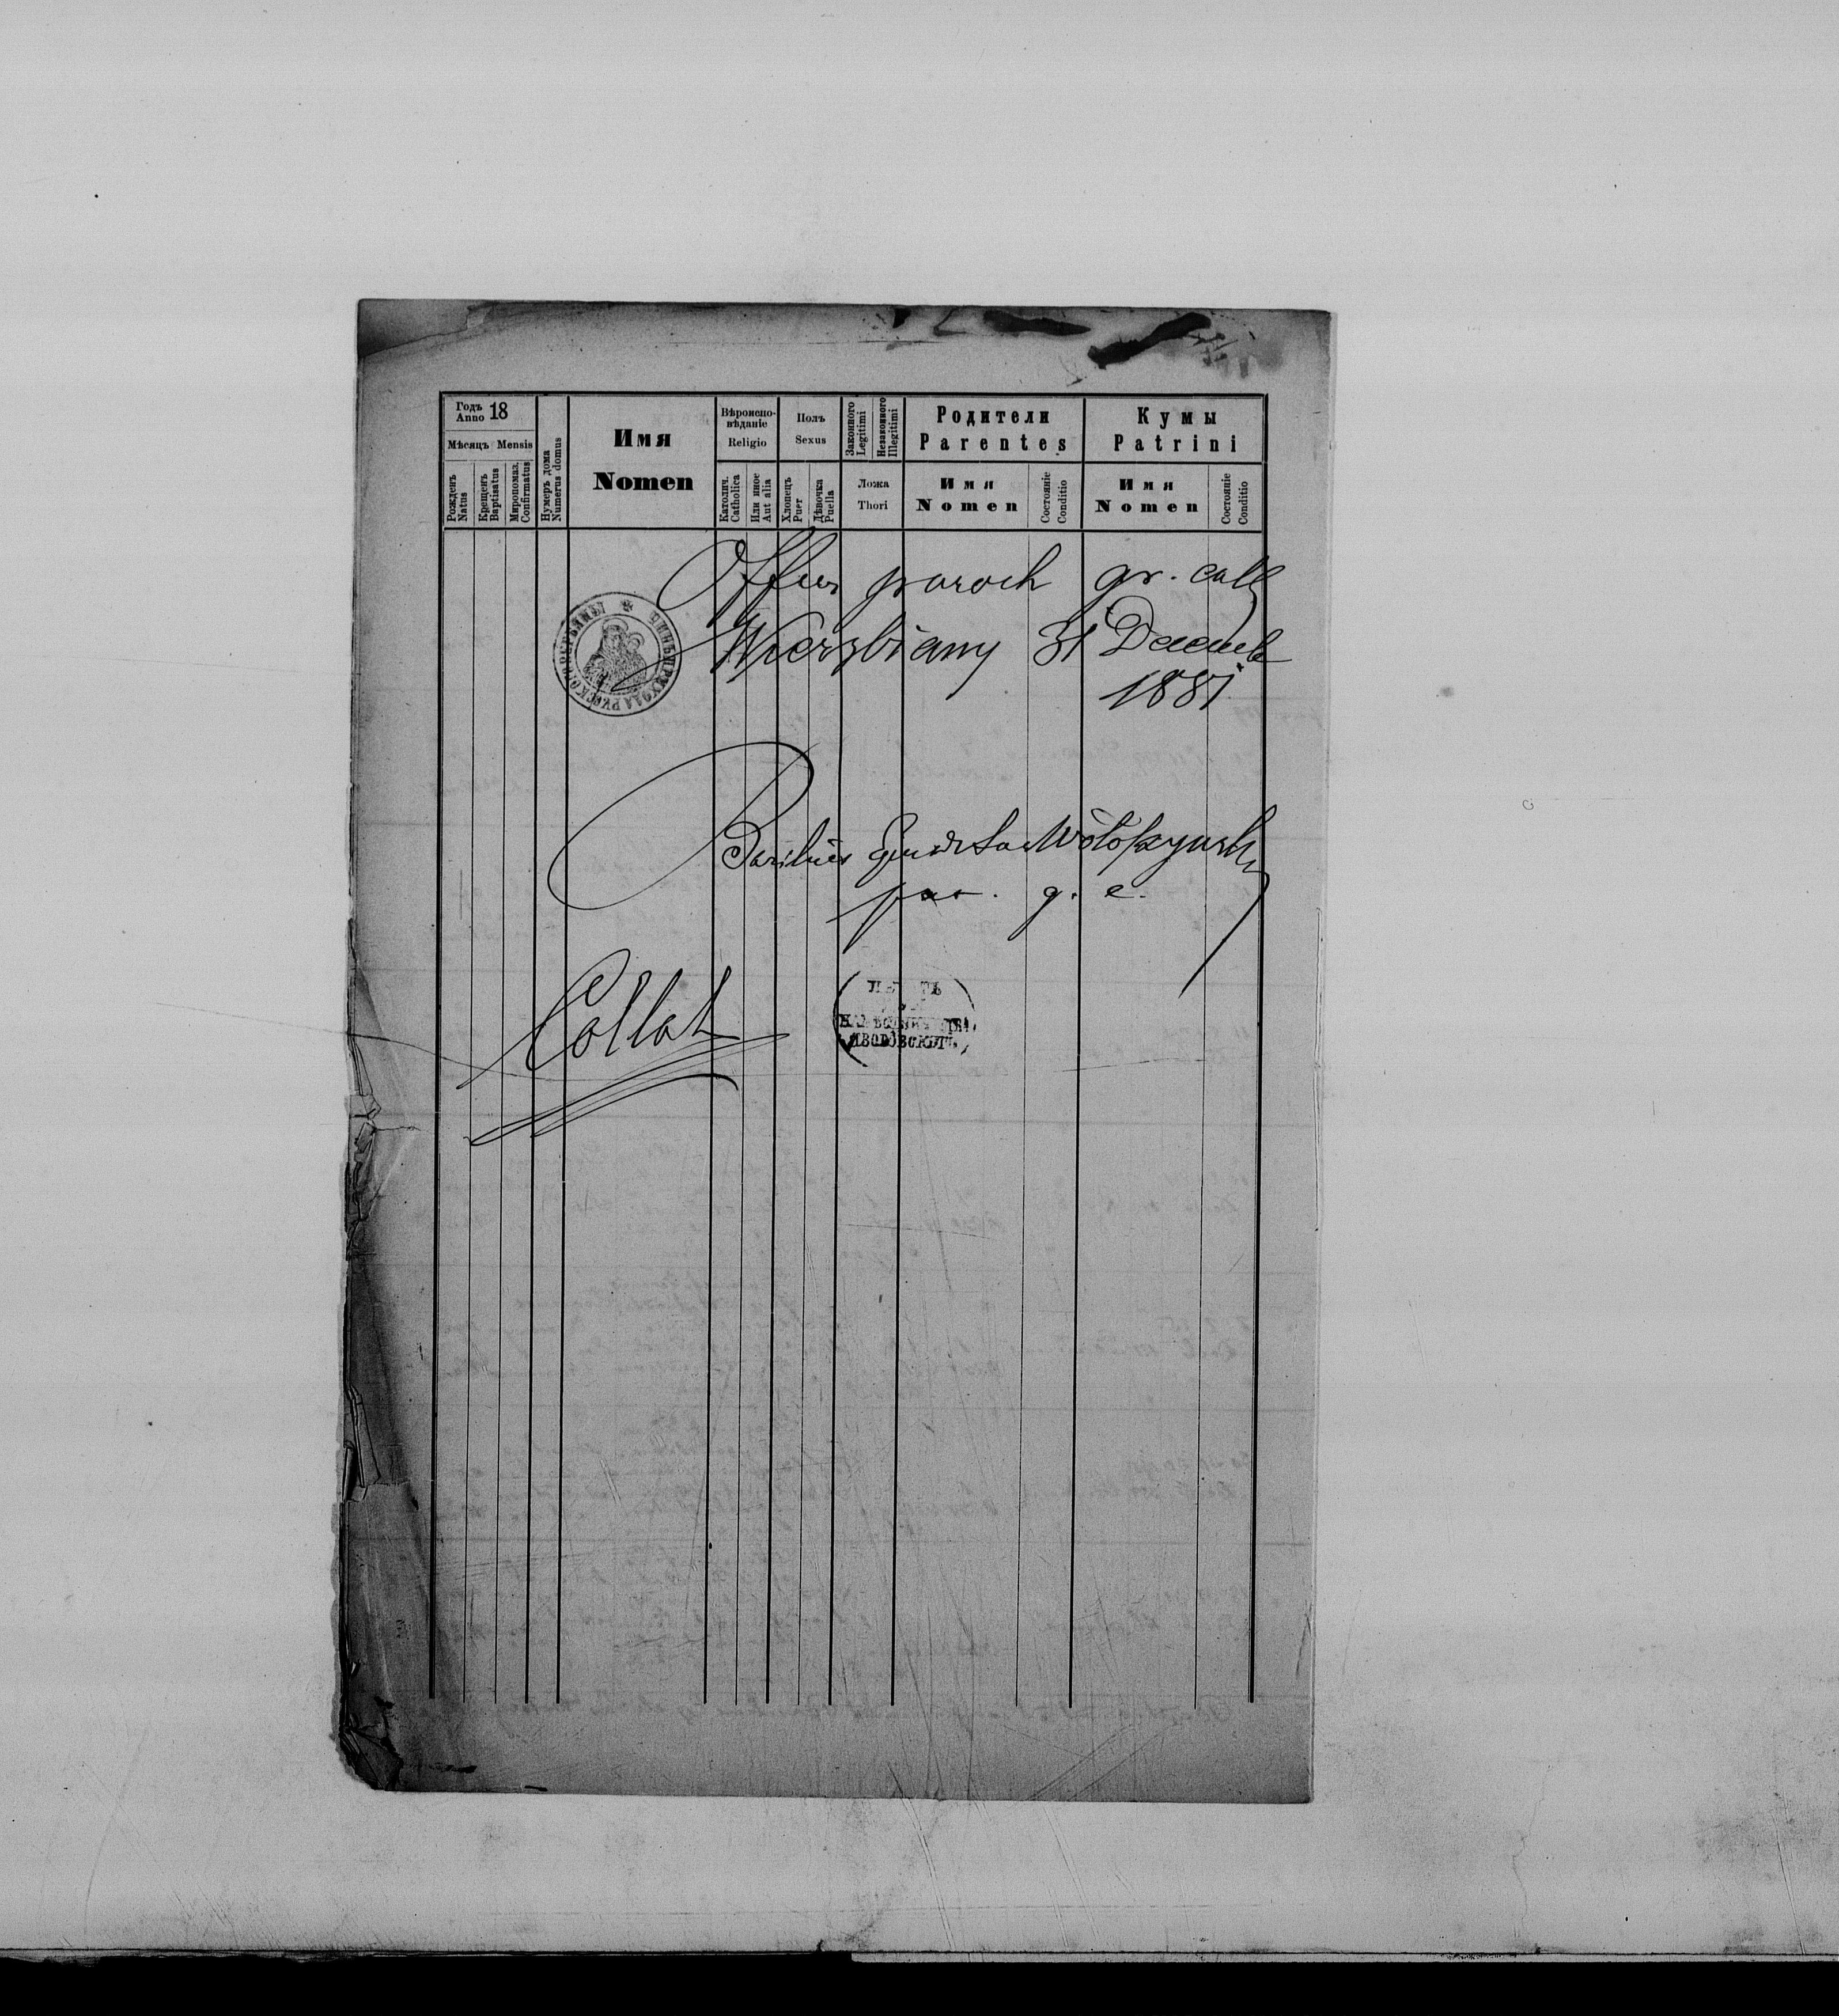 Годъ Anno 18
Мѣсяцъ Mensis
Рожденъ Natus
Крещенъ Baptisatus
Миропомаз. Confirmatus
Нумеръ дома Numerus domus
Имя
Nomen
Вѣроиспо-
вѣданіе
Religio
Католич. Catholica
Или иное Aut alia
Полъ
Sexus
Хлопецъ Puer
Дѣвочка Puella
Законного Legitimi
Незаконного Illegitimi
Ложа
Thori
Родители
Parentes
Имя
Nomen
Состояніе Conditio
Кумы
Patrini
Имя
Nomen
Состояніе Conditio
paroch gr. cath
Wierzbiany 31 Decemb
1881
Basilius
par. g. c.
Collat